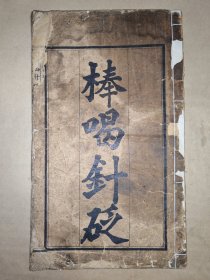 棒喝針砭